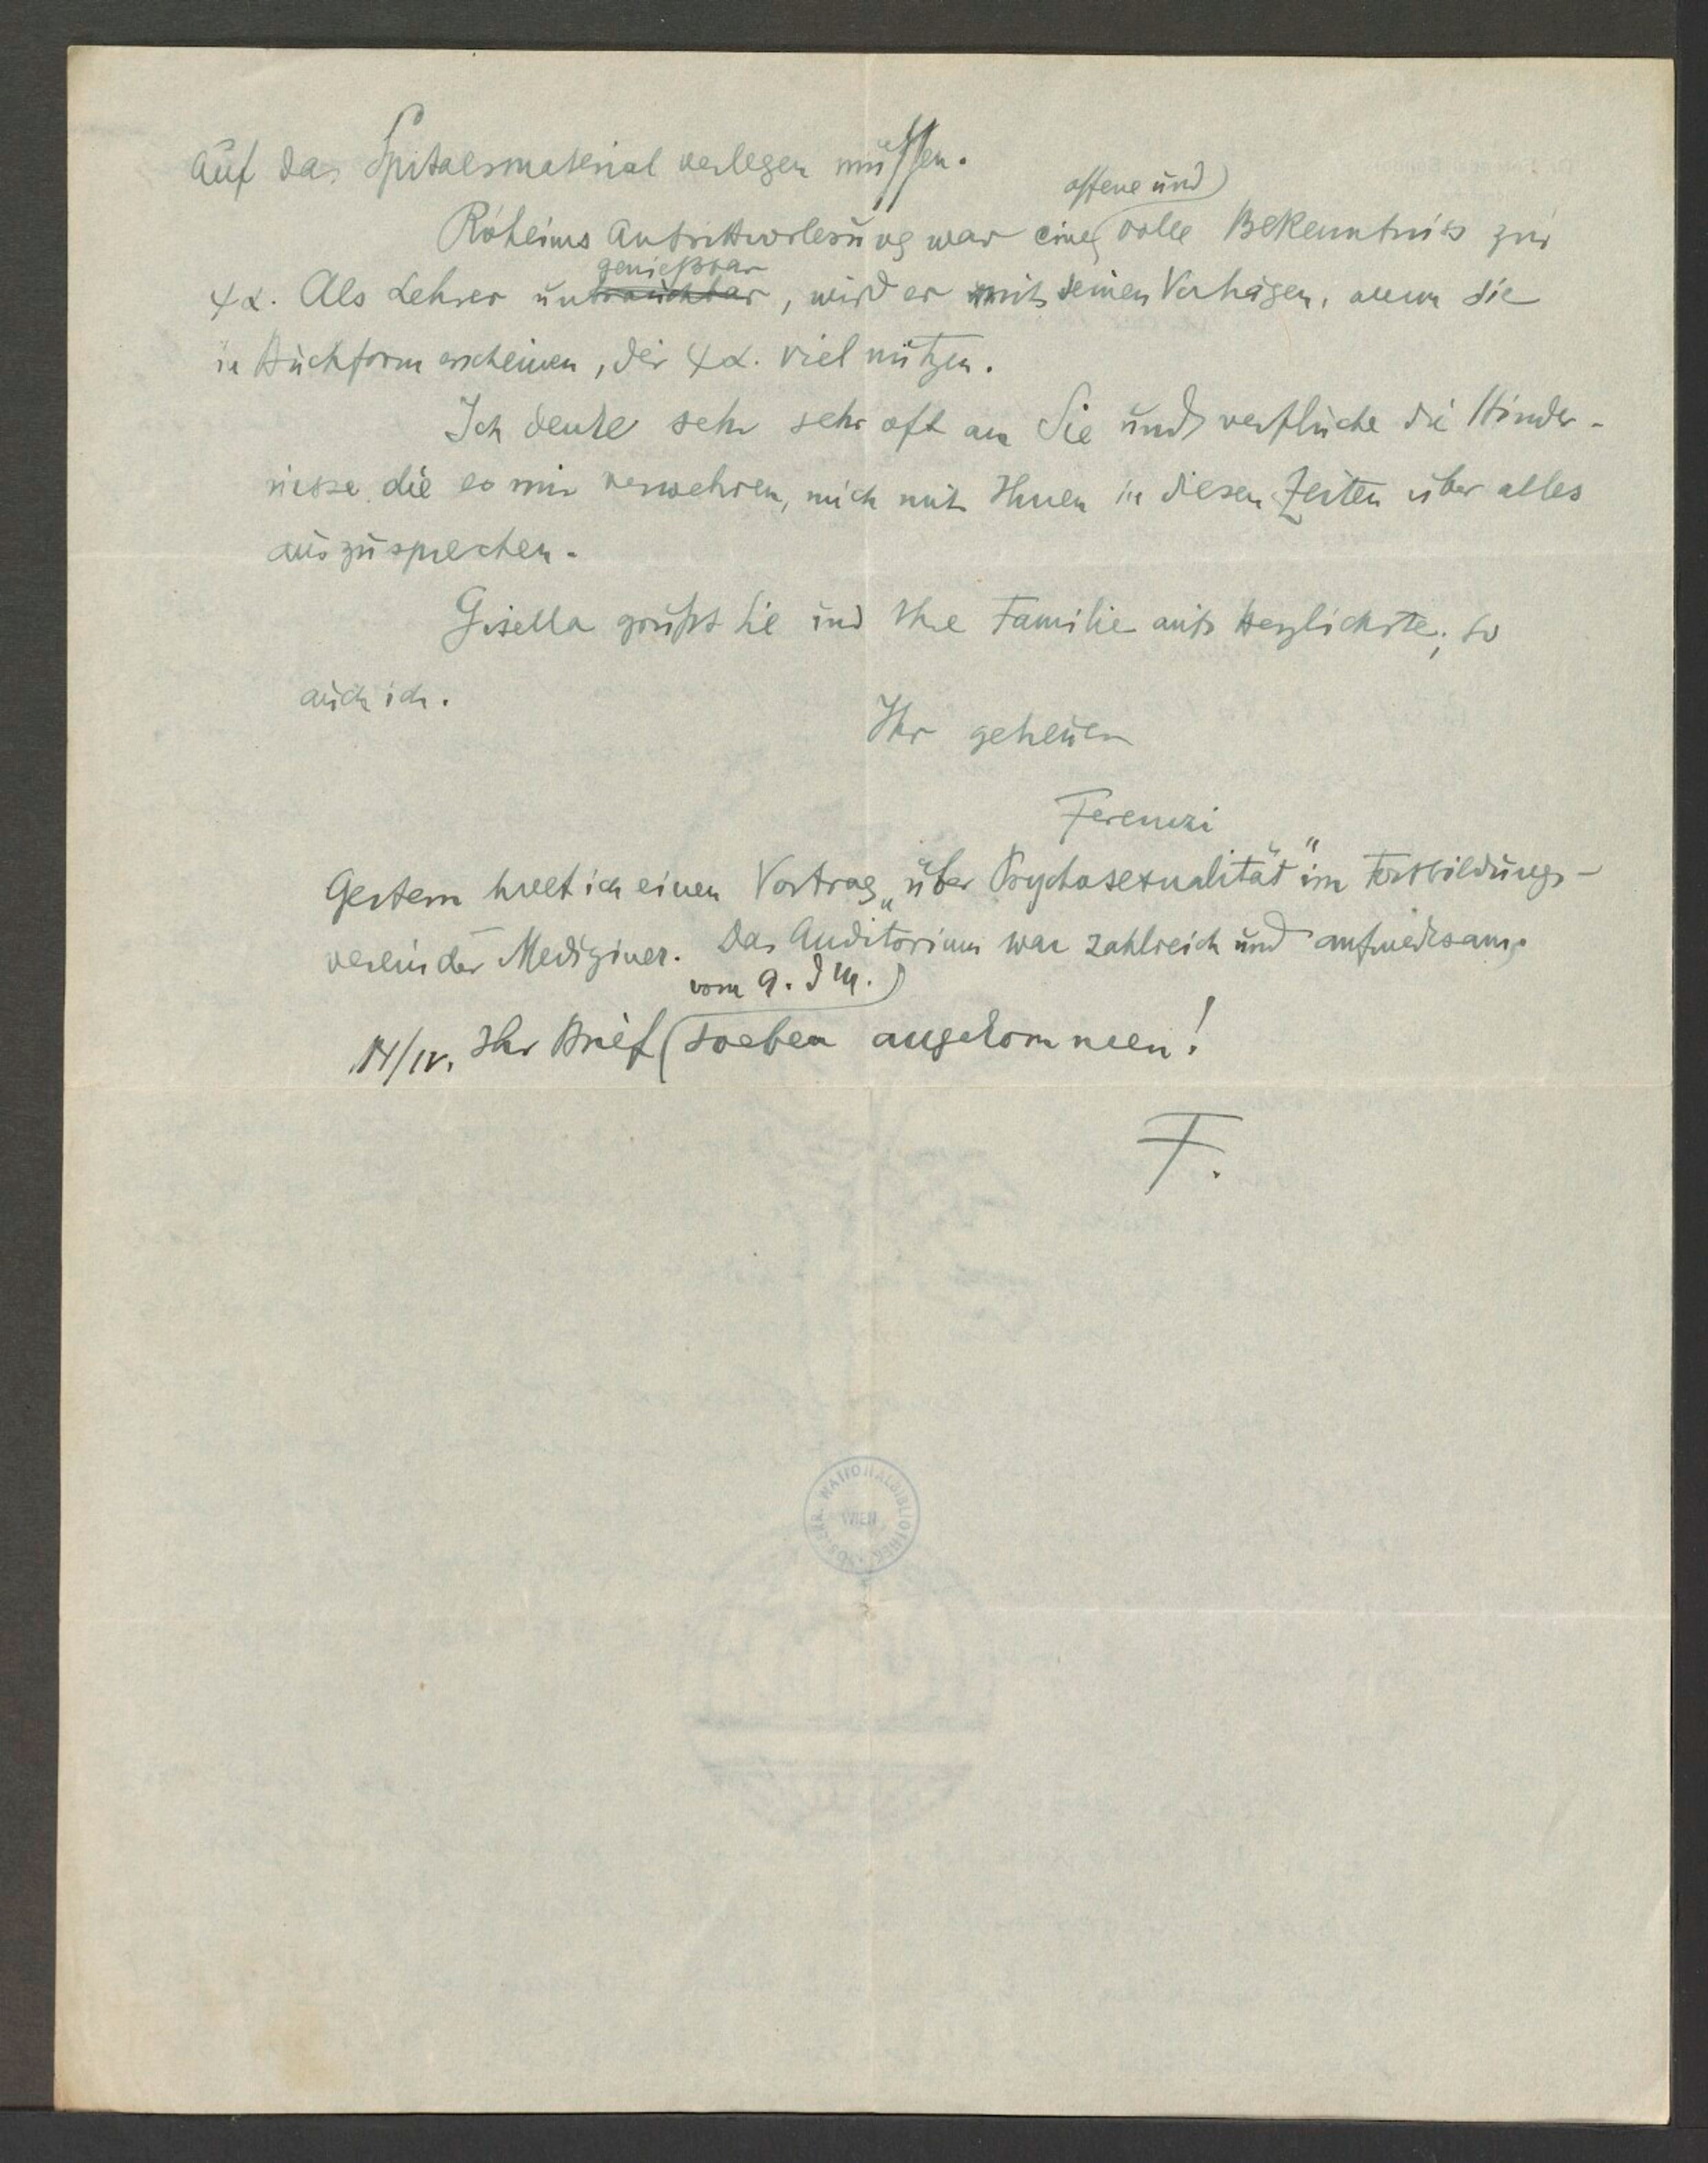 auf das Spitalsmaterial verlegen müssen.
offene und
Róheims Antrittsvorlesung war eine volle Bekenntniss zur
genießbar
ψα. Als Lehrer unbrauchbar, wird er mit seinen Vorträgen, wenn sie
in Buchform erscheinen, der ψα. viel nützen.
Ich denke sehr sehr oft an Sie und verfluche die Hinder-
nisse die es mir verwehren, mich mit Ihnen in diesen Zeiten über alles
auszusprechen.
Gisella grüßt Sie und Ihre Familie aufs Herzlichste; so
auch ich.
Ihr getreuer
Ferenczi
Gestern hielt ich einen Vortrag „über Psychosexualität" im Fortbildungs-
verein der Mediziner. Das Auditorium war zahlreich und aufmerksam.
vom 9. d M.
14/IV. Ihr Brief soeben angekommen!
F.
ÖSTERR. NATIONALBIBLIOTHEK
WIEN